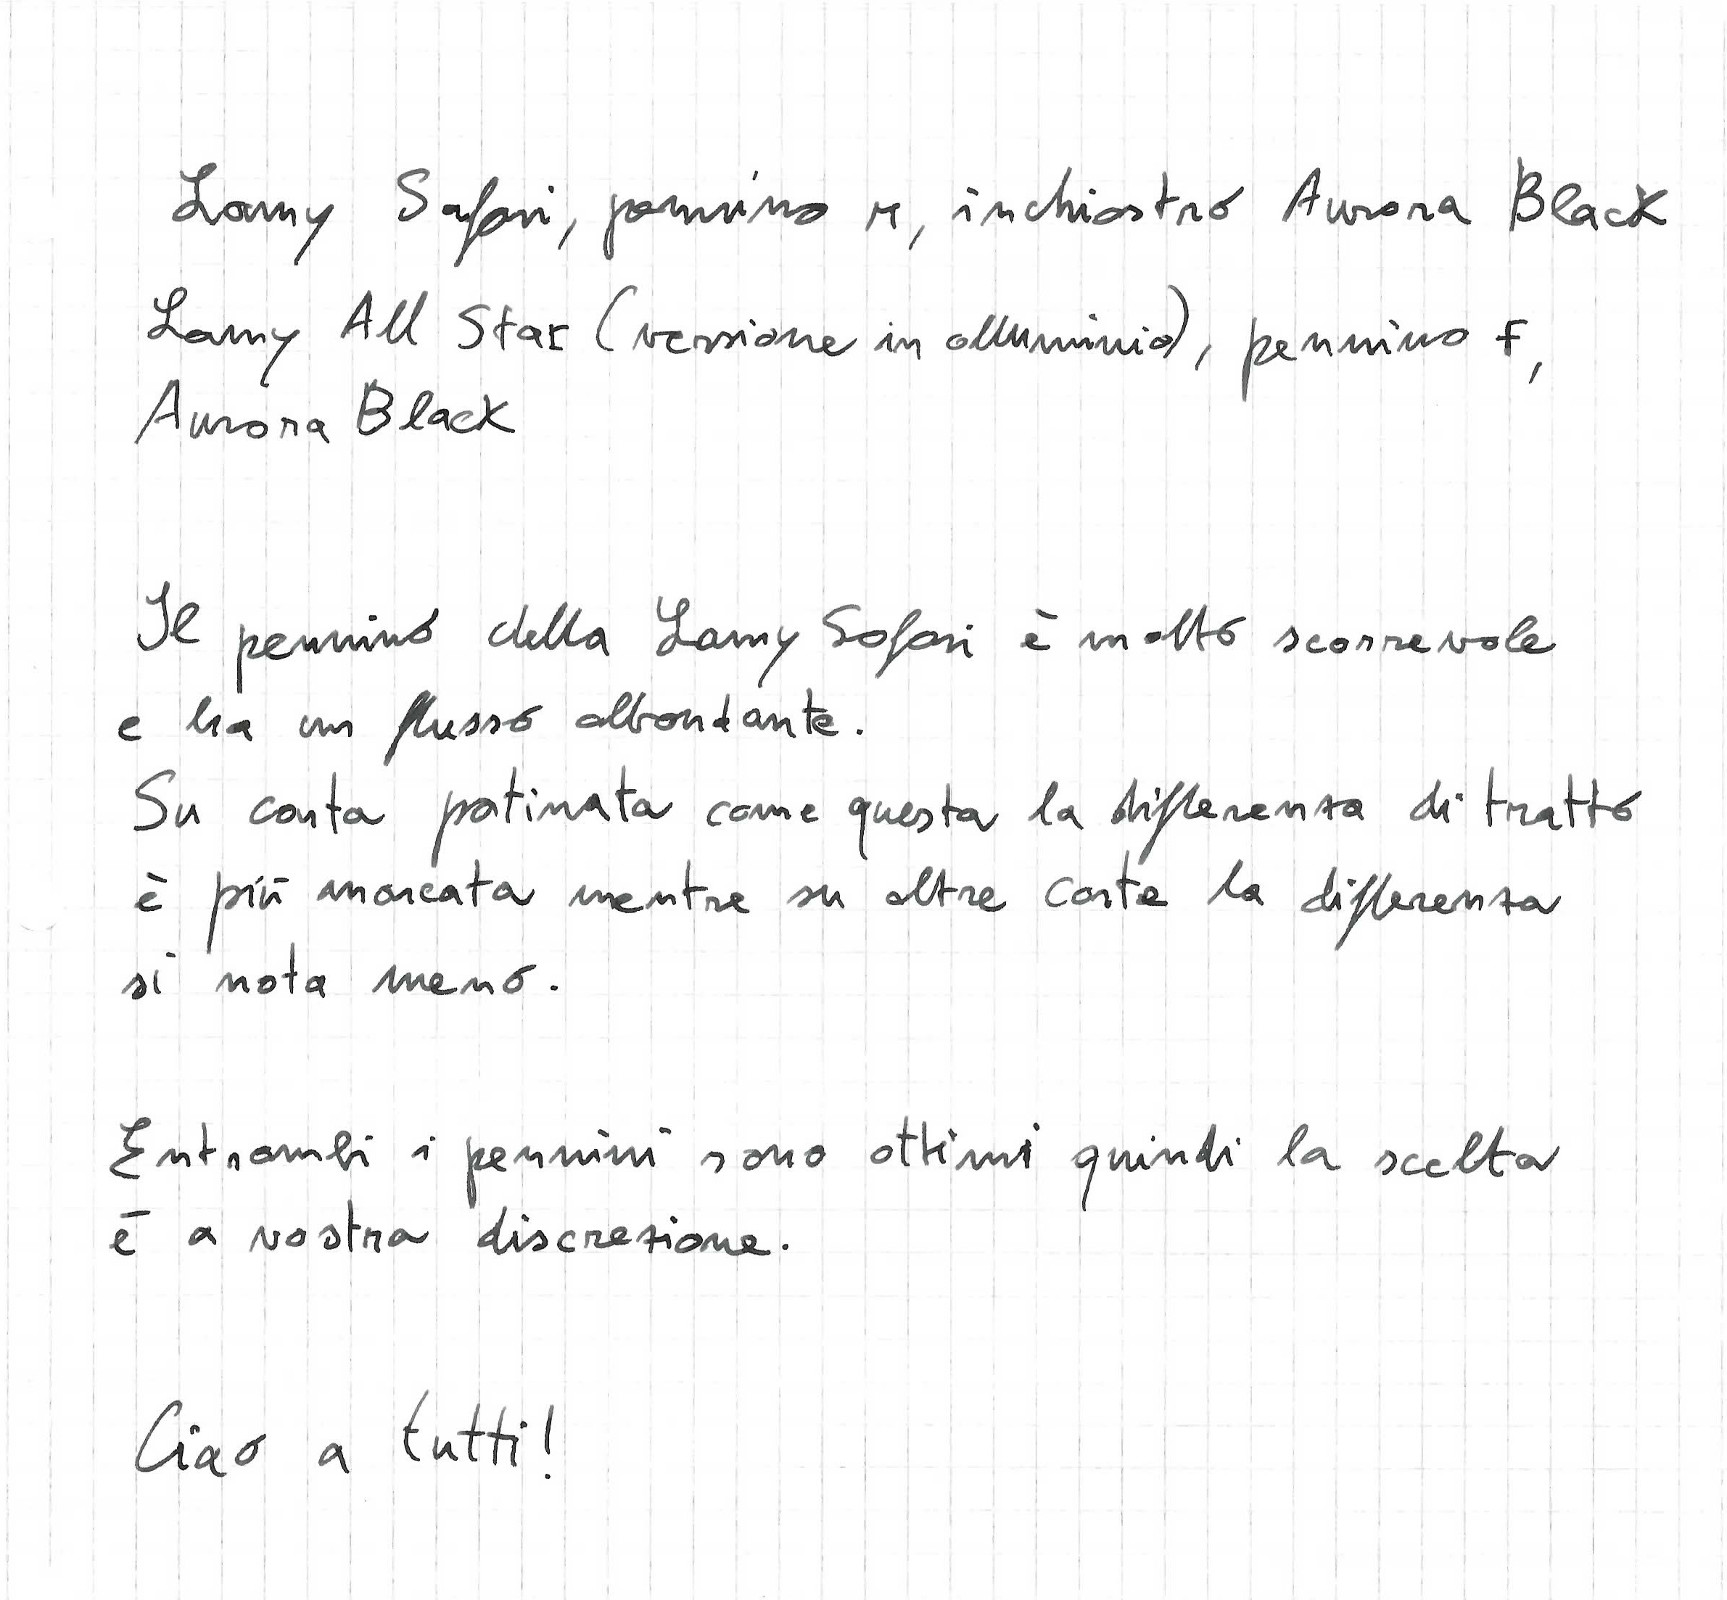 Lamy Safari, pennino M, inchiostro Aurora Black
Lamy All Star (versione in alluminio), pennino F,
Aurora Black
Il pennino della Lamy Safari è molto scorrevole
e ha un flusso abbondante.
Su carta patinata come questa la differenza di tratto
è più marcata mentre su altre carte la differenza
si nota meno.
Entrambi i pennini sono ottimi quindi la scelta
è a vostra discrezione.
Ciao a tutti!